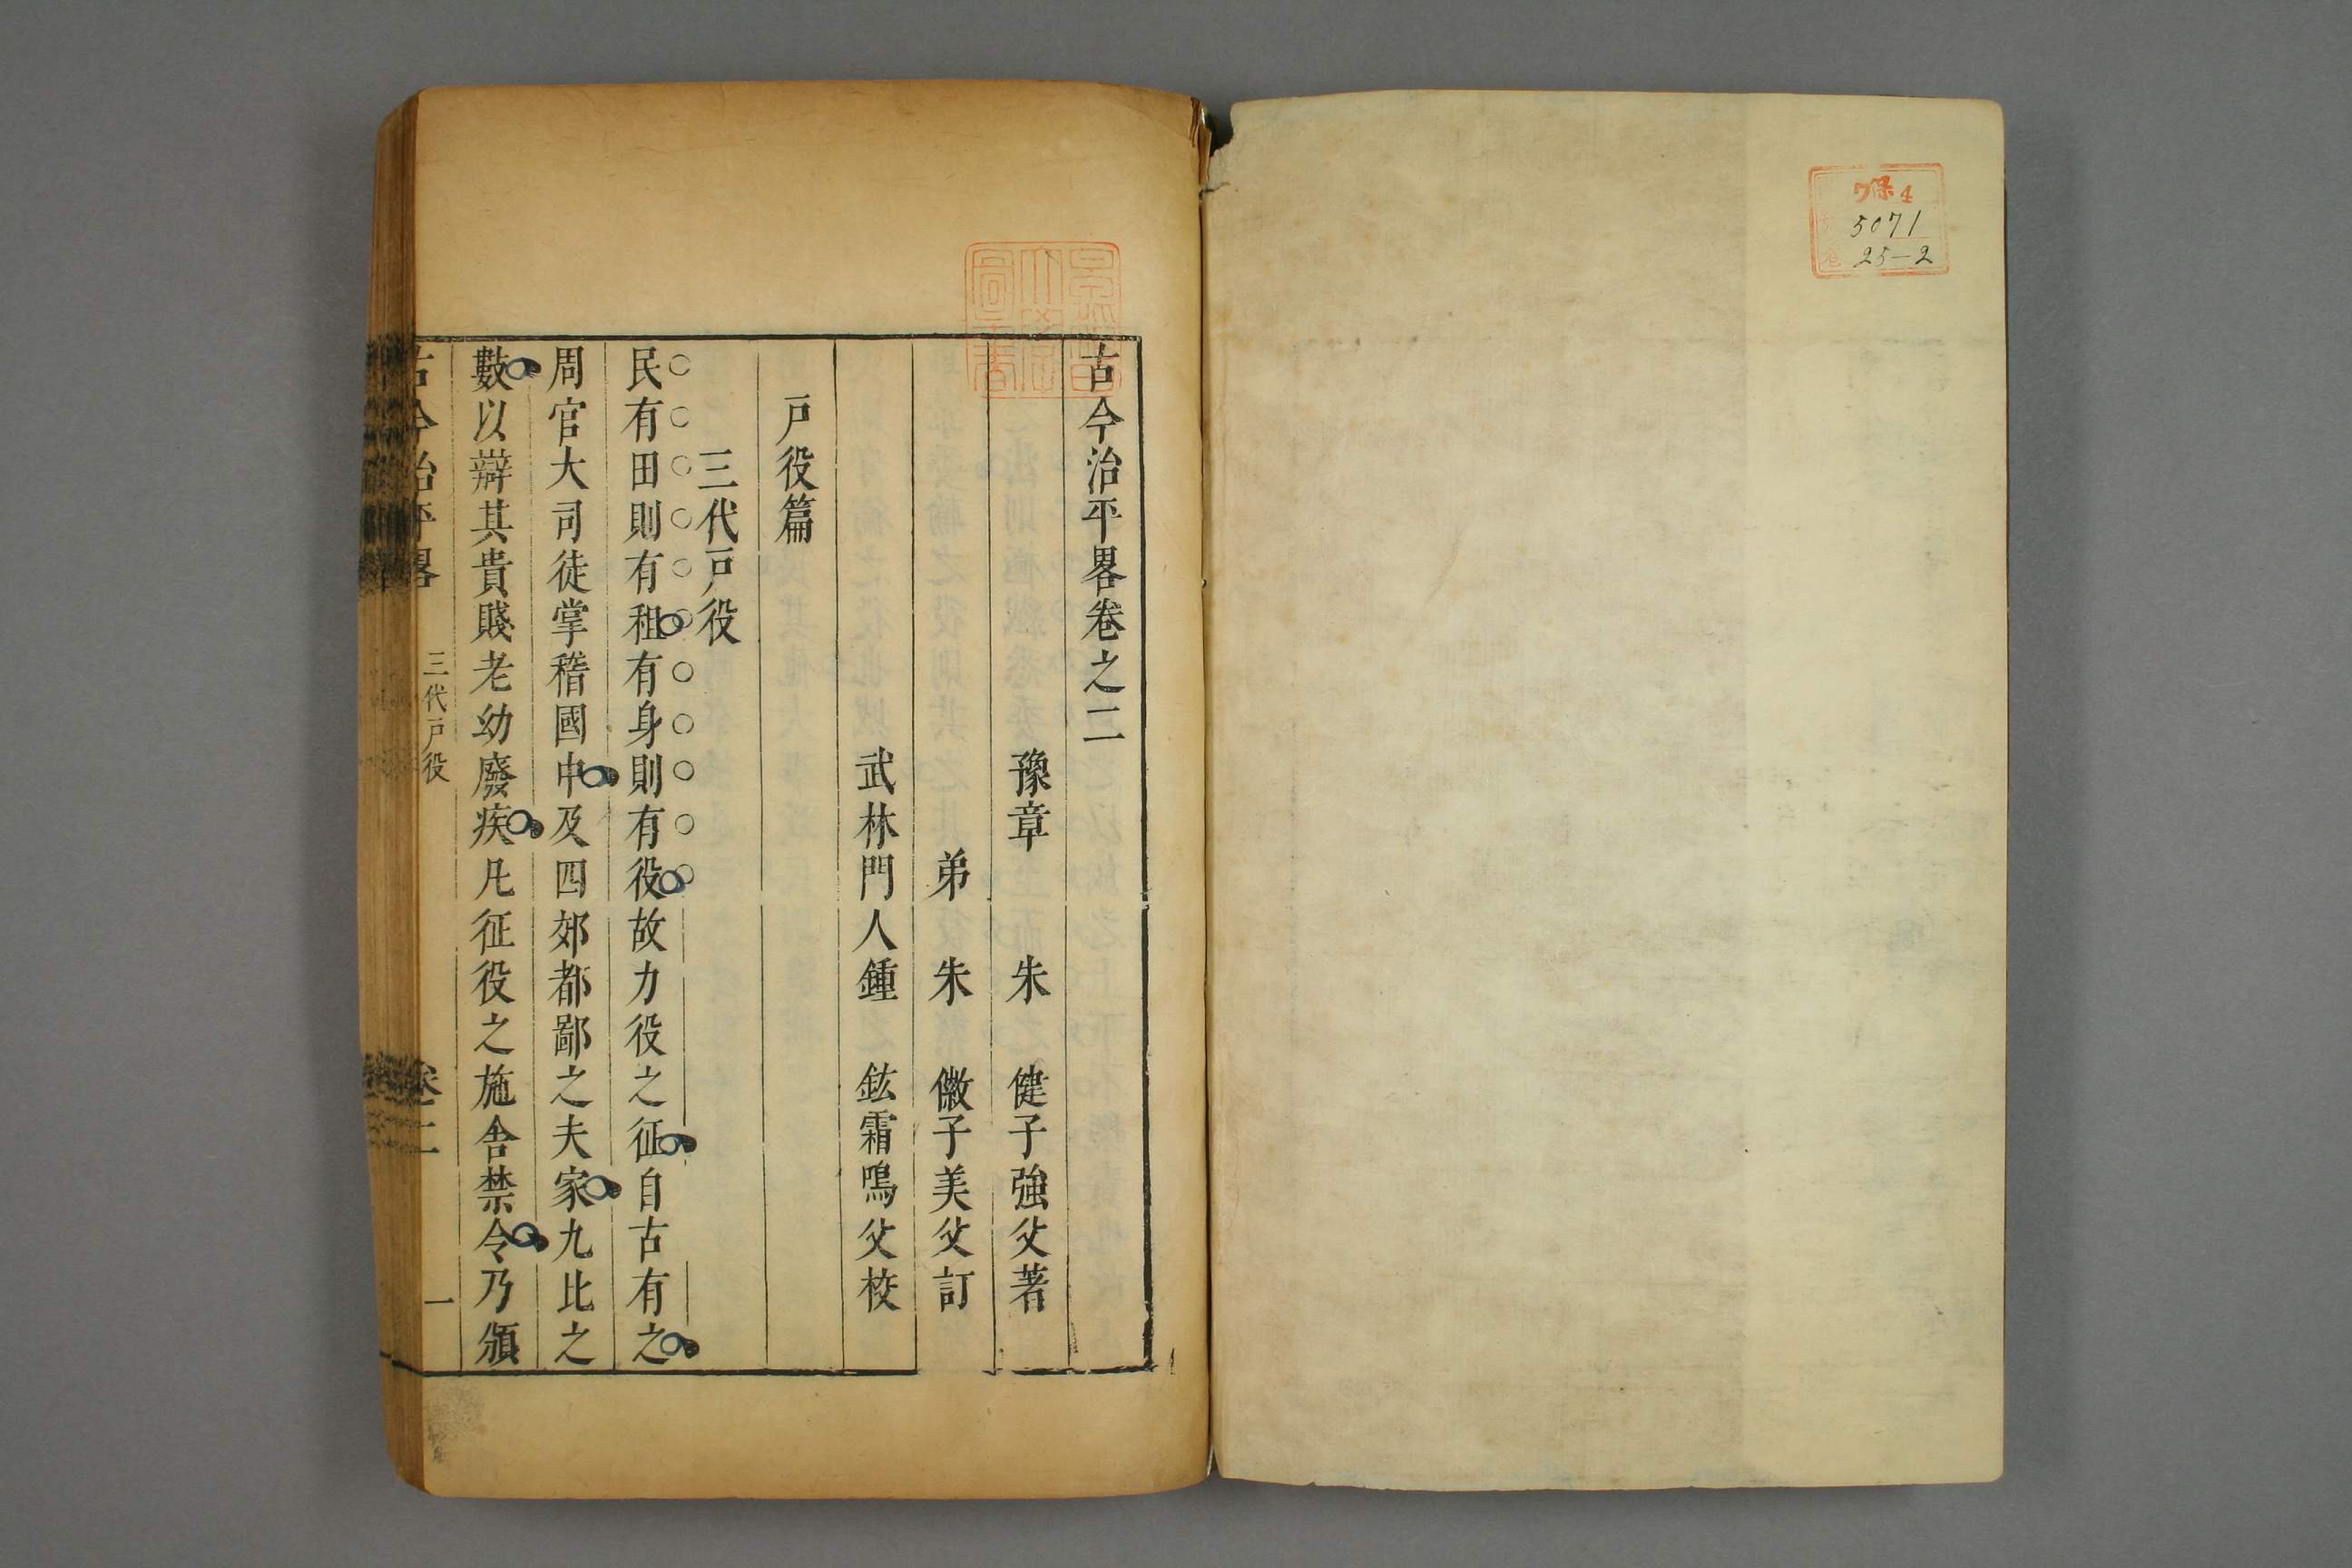 7保4
5071
25-2
古今治平畧卷之二
豫章　朱　健子強父著
弟　朱　徽子美父訂
武林門人鍾　鉉霜鳴父校
戶役篇
三代戶役
民有田則有租有身則有役故力役之征自古有之
周官大司徒掌稽國中及四郊都鄙之夫家九比之
數以辯其貴賤老幼廢疾凡征役之施舍禁令乃頒
古今治平畧　三代戶役　卷二　一